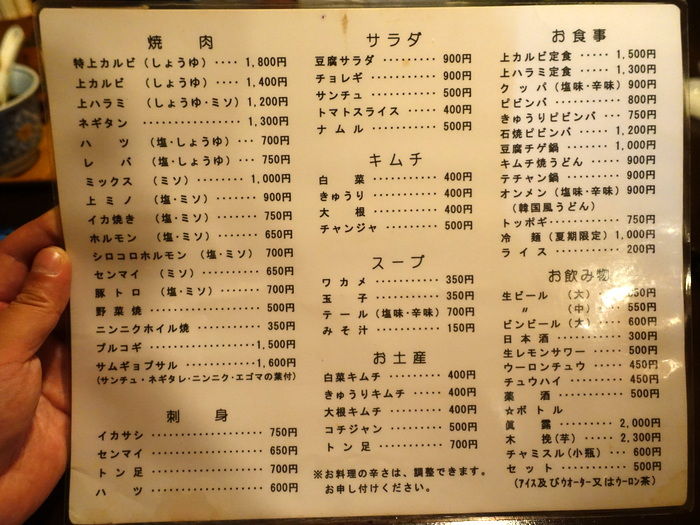 焼肉
特上カルビ（しょうゆ）‥‥ 1,800円
上カルビ （しょうゆ）‥‥ 1,400円
上ハラミ （しょうゆ・ミソ）1,200円
ネギタン ‥‥‥‥‥‥ 1,300円
ハツ （塩・しょうゆ）‥‥ 700円
レバ （塩・しょうゆ）‥‥ 750円
ミックス （ミソ）‥‥‥‥ 1,000円
上ミノ （塩・ミソ）‥‥‥ 900円
イカ焼き （塩・ミソ）‥‥‥ 750円
ホルモン （塩・ミソ）‥‥‥ 650円
シロコロホルモン （塩・ミソ） 700円
センマイ （ミソ）‥‥‥‥ 650円
豚トロ （塩・ミソ）‥‥‥ 700円
野菜焼 ‥‥‥‥‥‥‥ 500円
ニンニクホイル焼 ‥‥‥‥ 350円
プルコギ ‥‥‥‥‥‥‥1,500円
サムギョプサル ‥‥‥‥‥1,600円
（サンチュ・ネギタレ・ニンニク・エゴマの葉付）
刺身
イカサシ ‥‥‥‥‥‥‥ 750円
センマイ ‥‥‥‥‥‥‥ 650円
トン足 ‥‥‥‥‥‥‥ 700円
ハツ ‥‥‥‥‥‥‥ 600円
サラダ
豆腐サラダ ‥‥‥‥ 900円
チョレギ ‥‥‥‥‥ 900円
サンチュ ‥‥‥‥‥ 500円
トマトスライス ‥‥‥ 400円
ナムル ‥‥‥‥‥ 500円
キムチ
白菜 ‥‥‥‥‥ 400円
きゅうり ‥‥‥‥‥ 400円
大根 ‥‥‥‥‥ 400円
チャンジャ ‥‥‥‥ 500円
スープ
ワカメ ‥‥‥‥‥ 350円
玉子 ‥‥‥‥‥ 350円
テール（塩味・辛味）700円
みそ汁 ‥‥‥‥‥ 150円
お土産
白菜キムチ ‥‥‥‥ 400円
きゅうりキムチ ‥‥‥ 400円
大根キムチ ‥‥‥‥ 400円
コチジャン ‥‥‥‥ 500円
トン足 ‥‥‥‥‥ 700円
※お料理の辛さは、調整できます。
お申し付けください。
お食事
上カルビ定食 ‥‥ 1,500円
上ハラミ定食 ‥‥ 1,300円
クッパ（塩味・辛味）900円
ビビンバ ‥‥‥‥‥ 800円
きゅうりビビンバ ‥‥ 750円
石焼ビビンバ ‥‥ 1,200円
豆腐チゲ鍋 ‥‥‥ 1,000円
キムチ焼うどん ‥‥‥ 900円
テチャン鍋 ‥‥‥‥ 900円
オンメン（塩味・辛味）900円
（韓国風うどん）
トッポギ ‥‥‥‥‥ 750円
冷麺（夏期限定）1,000円
ライス ‥‥‥‥‥ 200円
お飲み物
生ビール （大）
〃 （中）‥‥ 550円
ビンビール（大）‥‥ 600円
日本酒 ‥‥‥‥‥ 300円
生レモンサワー ‥‥‥ 500円
ウーロンチュウ ‥‥‥ 450円
チュウハイ ‥‥‥‥ 450円
薬酒 ‥‥‥‥‥ 500円
☆ボトル
眞露 ‥‥‥‥‥ 2,000円
木挽(芋) ‥‥‥‥ 2,300円
チャミスル(小瓶) ‥‥ 600円
セット ‥‥‥‥‥ 500円
（アイス及びウオーター又はウーロン茶）